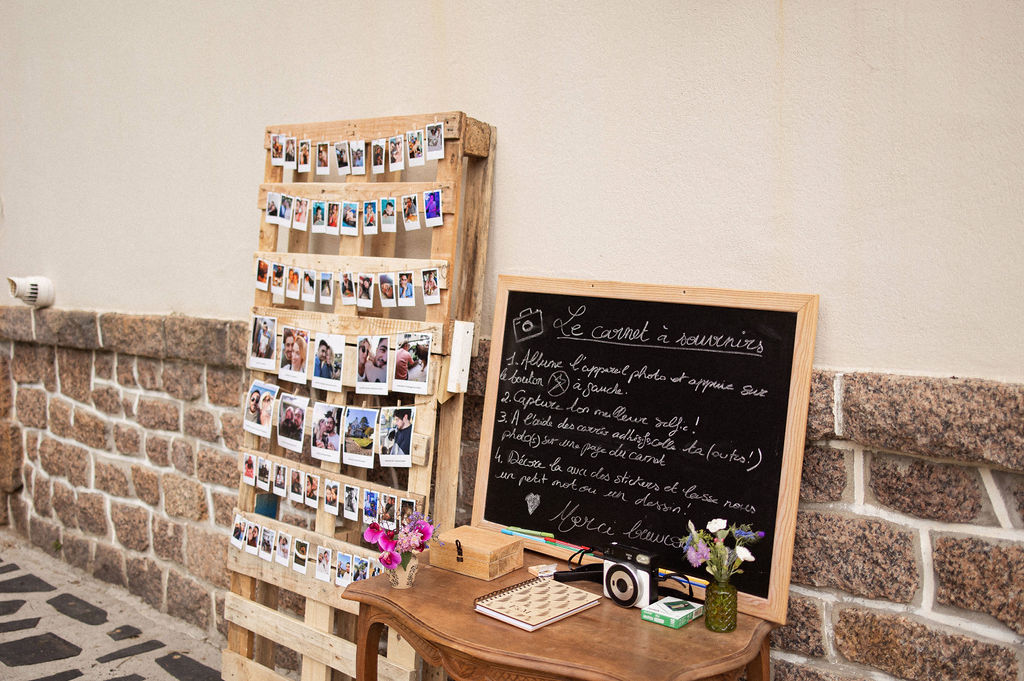 Le carnet à souvenirs
1. Allume l'appareil photo et appuie sur
le bouton à gauche.
2. Capture ton meilleur selfie!
3. A l'aide des carrés adhésifs colle ta (ou tes!)
photo(s) sur une page du carnet
4. Décore la avec des stickers et laisse nous
un petit mot ou un dessin!
Merci